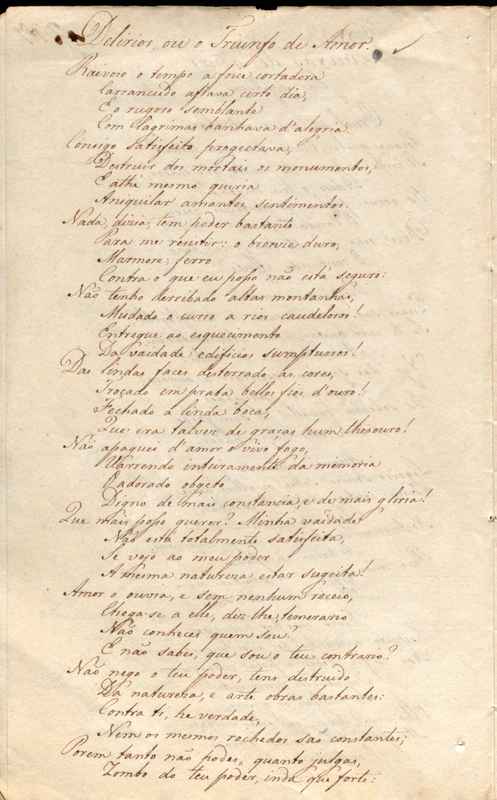 Delirios, ou o Triunfo de Amor.
Raivoso o tempo a foice cortadora
Carrancudo afiava certo dia,
E o rugoso semblante
Com lagrimas banhava d'alegria.
Comsigo satisfeito progectava,
Destruir dos mortais os monumentos,
E athe mesmo queria
Aniquilar amantes sentimentos.
Nada, dizia, tem poder bastante
Para me resistir: o bronze duro,
Marmore, ferro
Contra o que eu posso não está seguro:
Não tenho derribado altas montanhas,
Mudado o curso a rios caudelosos!
Entregue ao esquecimento
Da vaidade edificios sumptuosos!
Das lindas faces desterrado as cores,
Troçado em prata bellos fios d'ouro!
Fechado a linda boca,
Que era talvez de graças hum thesouro!
Não apaguei d'amor o vivo fogo,
Varrendo inteiramente da memoria
Eadorado obgeto
Digno de mais constancia, e de mais gloria!
Que mais posso querer? Minha vaidade
Não está totalmente satisfeita,
Se vejo ao meu poder
A mesma natureza estar sugeita!
Amor o ouvia, e sem nenhum receio,
Chega-se a elle, diz-lhe; temerario
Não conheces quem sou?
E não sabes, que sou o teu contrario?
Não nego o teu poder, tens destruido
Da natureza, e arte obras bastantes:
Contra ti, he verdade,
Nem os mesmos rochedos são constantes;
Porem tanto não podes, quanto julgas,
Zombo do teu poder, inda que forte: